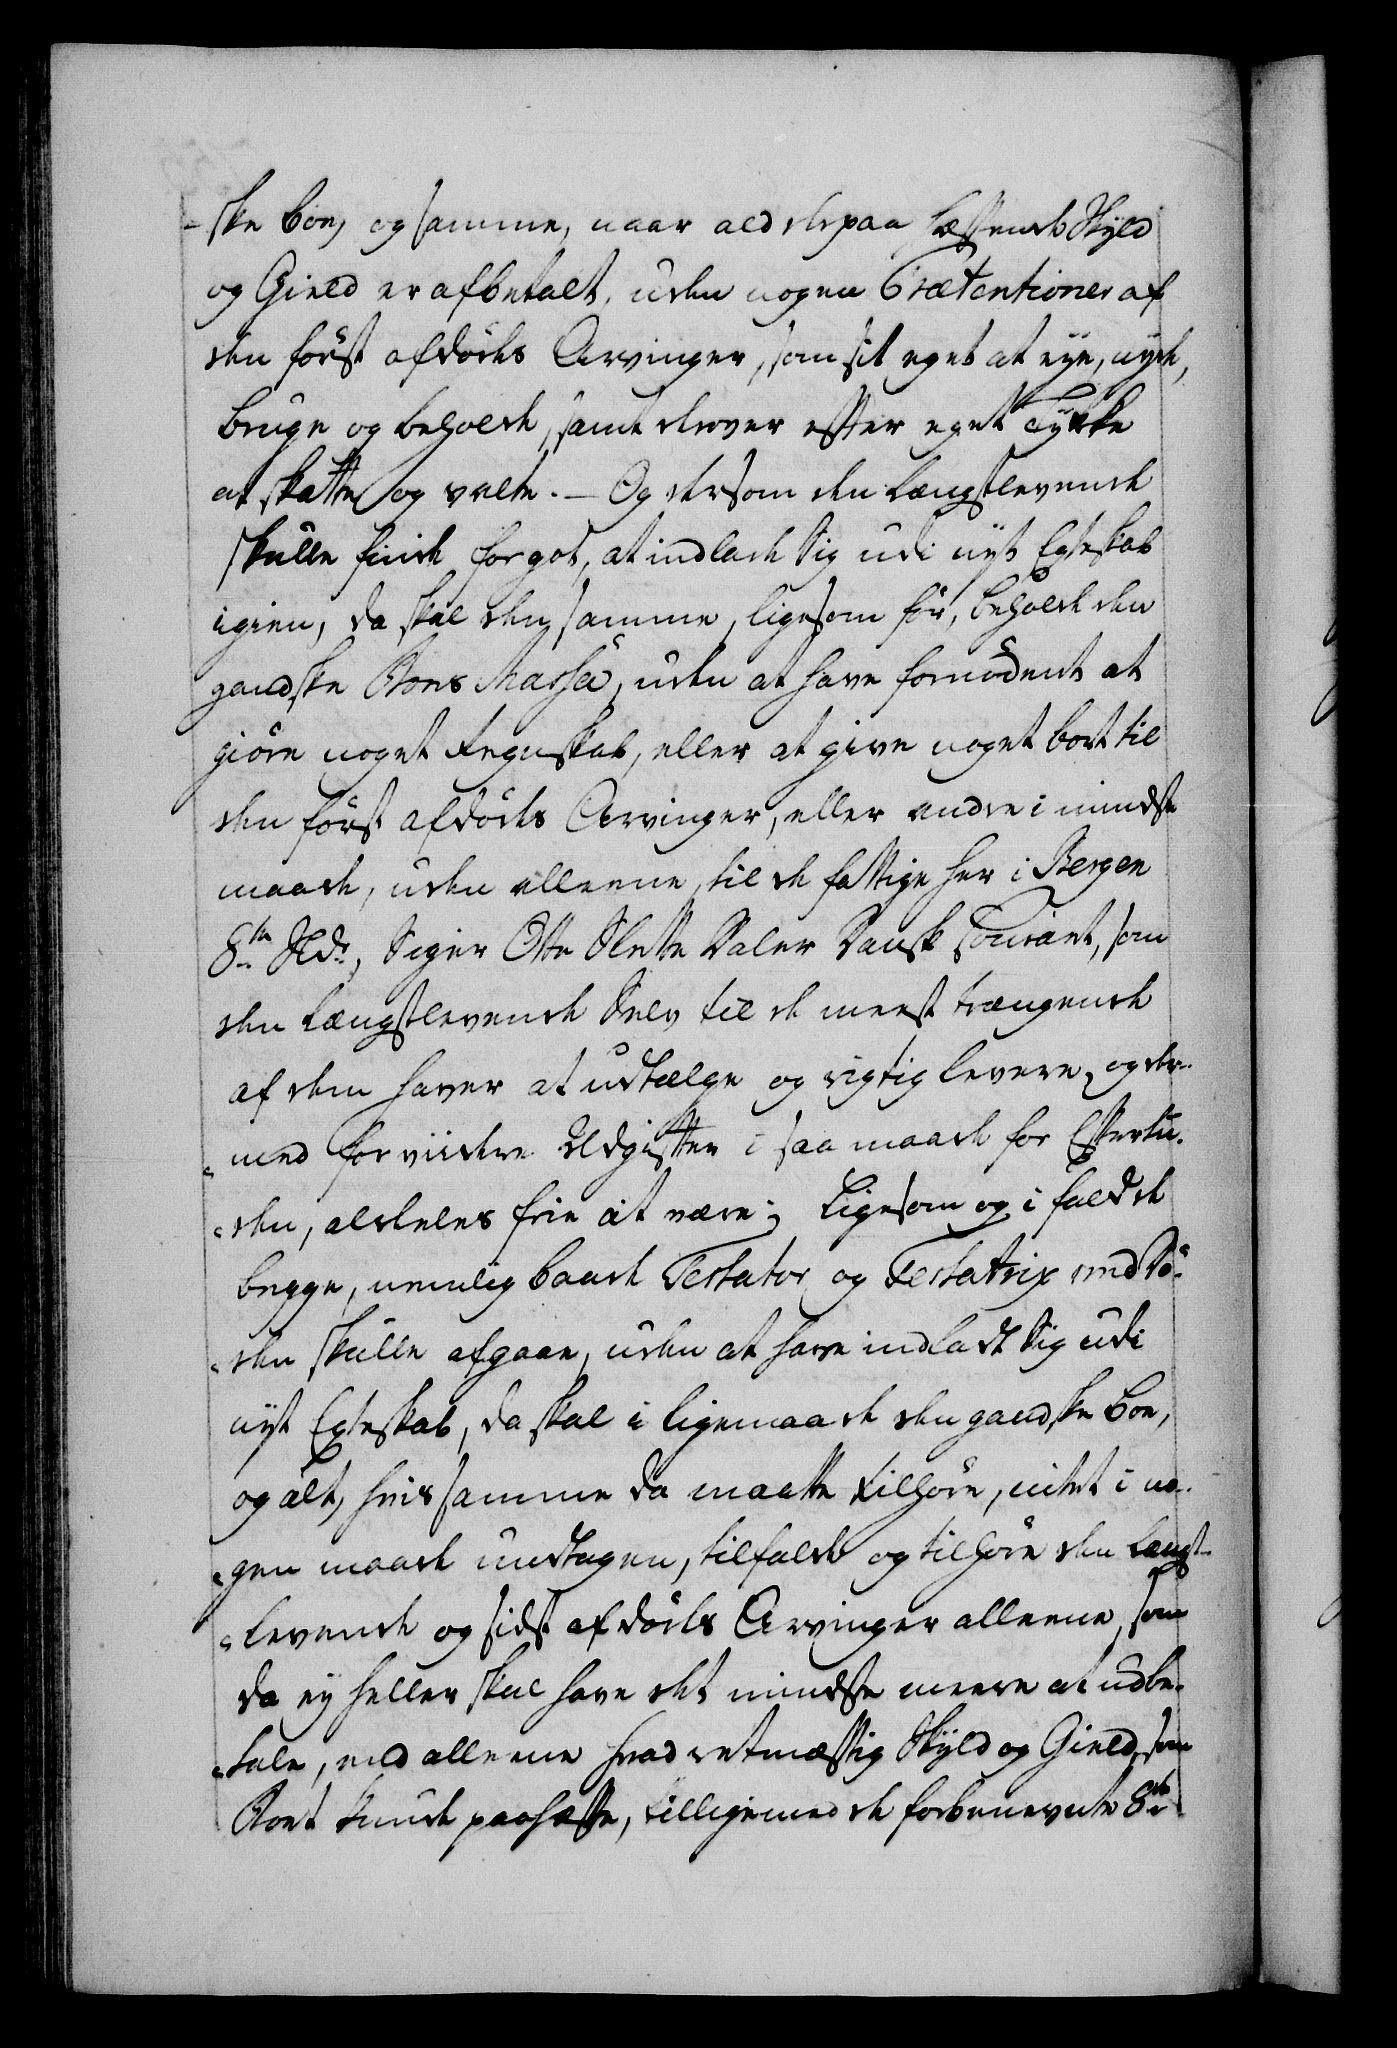 -ske boe, og samme, naar ald derpaa hæftende Skyld
og Gield er afbetalt, uden nogen Prætentioner af
den først afdødes Arvinger, som sit eget at eye, nyde,
bruge og beholde, samt derover efter eget Tykke
at skalte og valte. – Og dersom den Længstlevende
skulle finde for got, at indlade Sig udi nyt Egteskab
igien, da skal den samme, ligesom før, beholde den
gandske Boens Massa, uden at have fornødent at
giøre noget Regnskab, eller at give noget bort til
den først afdødes Arvinger, eller andre i mindste
maade, uden alleene, til de fattige her i Bergen
8te Sldr, Siger Otte Slette Daler Dansk Courant, som
den Længstlevende Selv til de meest trængende
af dem haver at udtælge og rigtig levere, og der-
-med for viidere Udgifter i saa maade for Eftertii-
-den, aldeles frie at være; Ligesom og i fald de
begge, nemlig baade Testator og Testatrix ved Dø-
-den skulle afgaae, uden at have indladt Sig udi
nyt Egteskab, da skal i ligemaade den gandske Boe,
og alt, hvis samme da maatte tilhøre, intet i no-
-gen maade undtagen, tilfalde og tilhøre den Længst-
-levende og sidst afdødes Arvinger alleene, som
da ey heller skal have det mindste meere at udbe-
-tale, end alleene hvad retmæssig Skyld og Gield, som
Boet kunde paahæfte, tilligemed de forbenevnte 8te